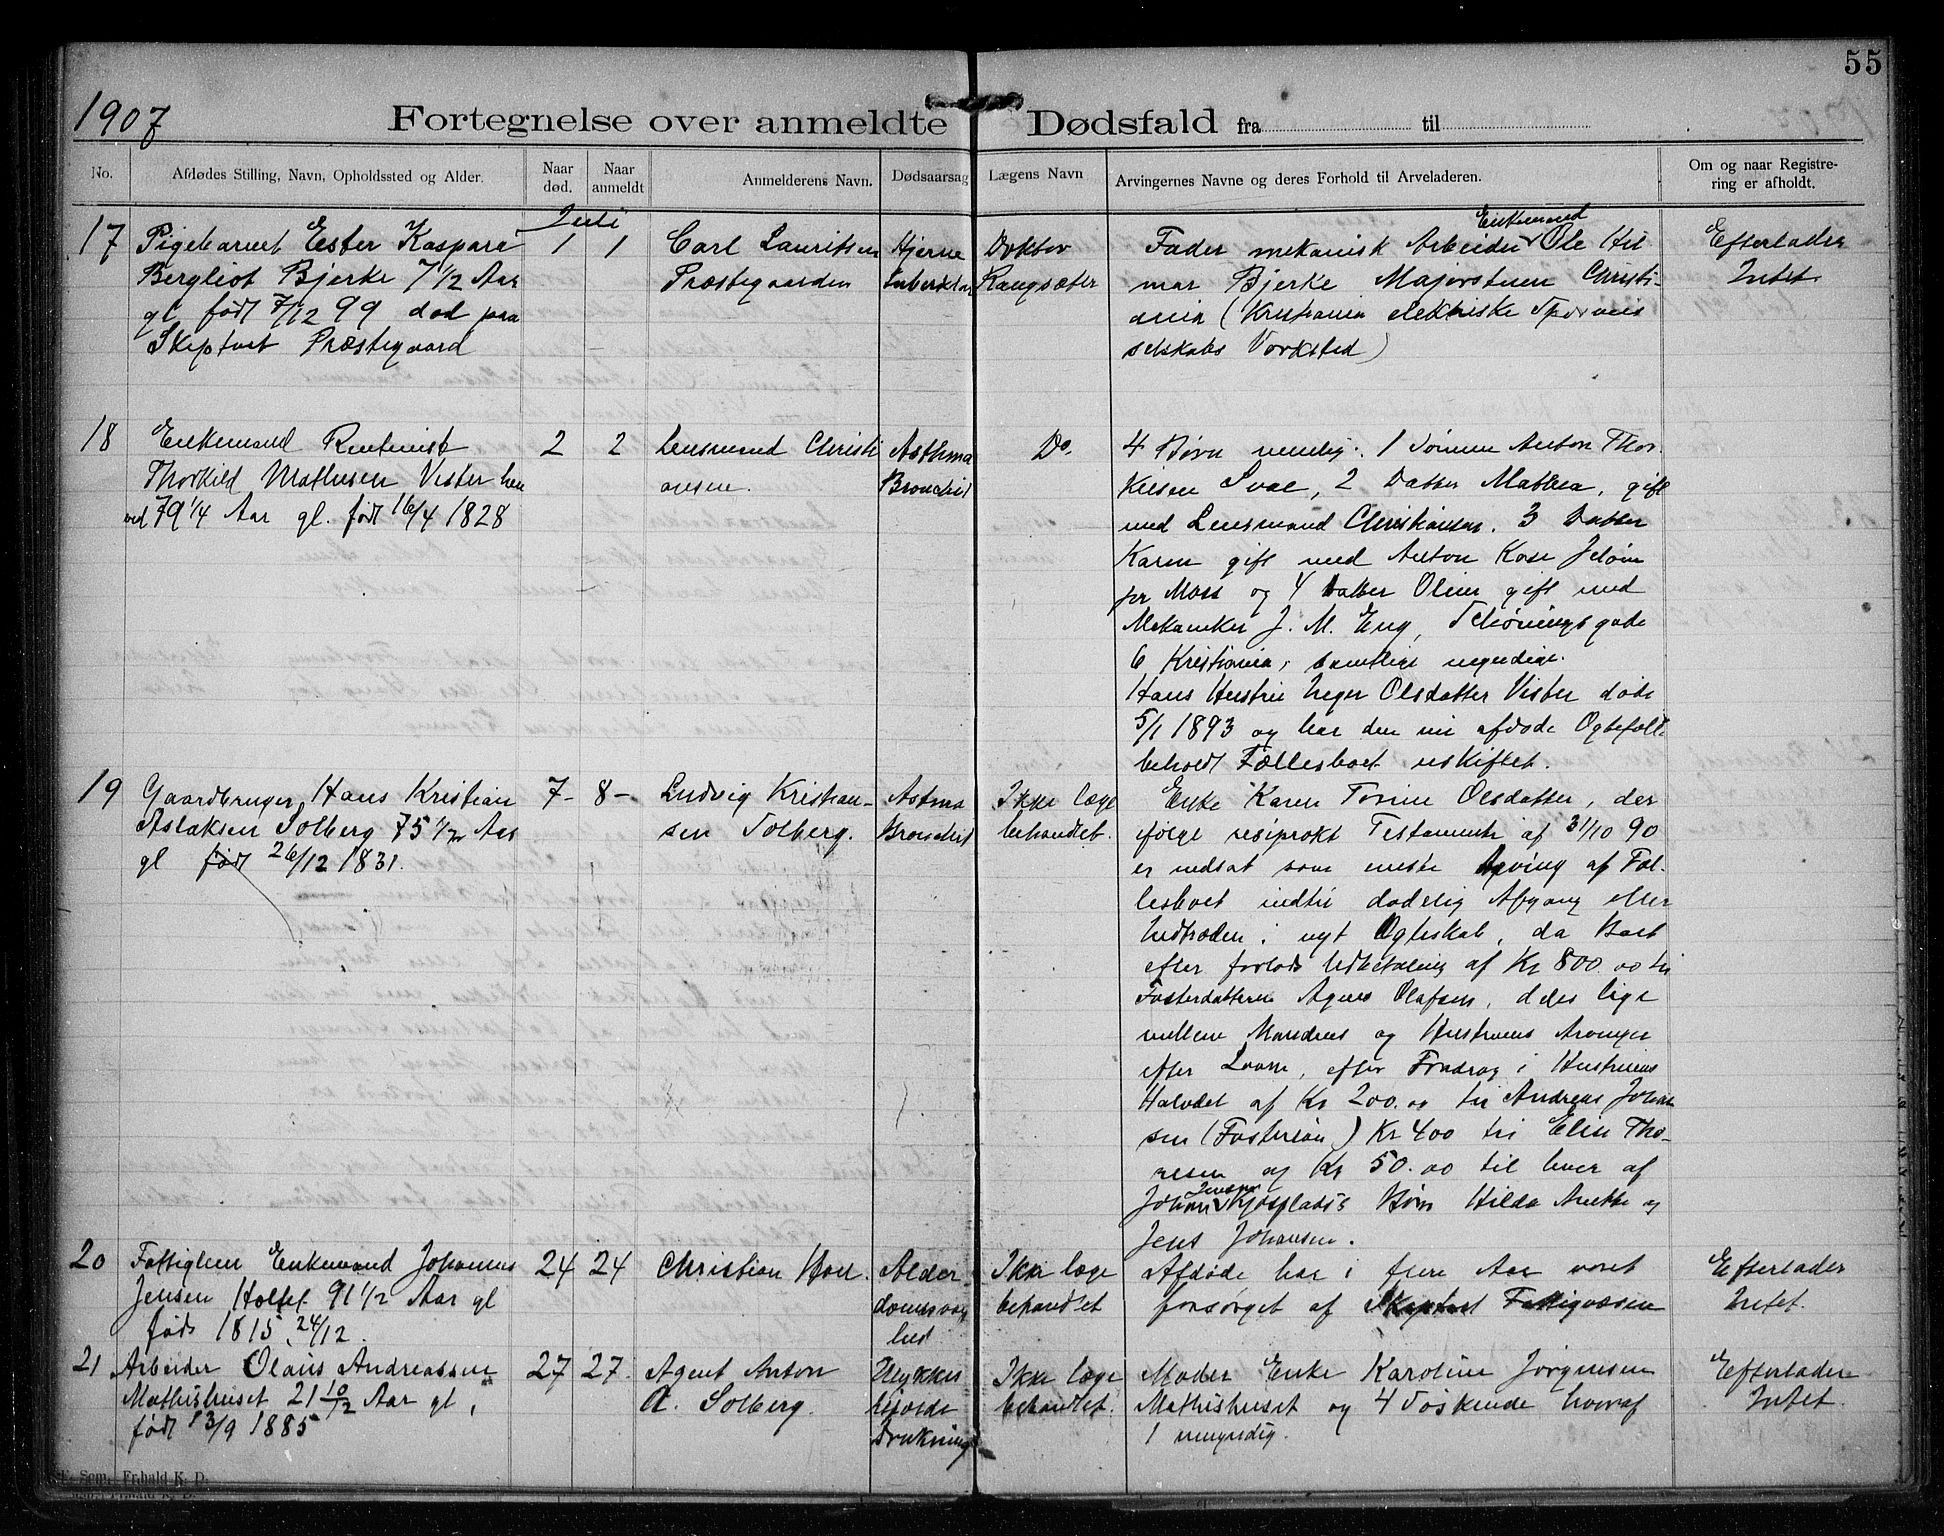 55
1907
Fortegnelse over anmeldte Dødsfald fra til
No.
Afdødes Stilling, Navn, Opholdssted og Alder.
Naar død.
Naar anmeldt
Anmelderens Navn.
Dødsaarsag
Lægens Navn
Arvingernes Navne og deres Forhold til Arveladeren.
Om og naar Registrering er afholdt.
Juli
17
Pigebarnet Ester Kaspara
Bergliot Bjerke 7 1/2 Aar
gl født 7/12 99 død paa
Skiptvet Præstegaard
1
1
Carl Lauritsen
Præstegaarden
Hjerne
Doktor
Enkemand
Fader mekanisk Arbeider Ole Hil
mar Bjerke Majorstuen Christi-
ania (Kristiania elektriske Sporveis
selskabs Verksted)
Efterlader
Intet
18
Enkemand Rentenist
Thorkild Mathisen Vister hen
ved 79 1/4 Aar gl. født 16/4 1828
2
2
Lensmand Christi
ansen.
Asthma
Bronchit
Do.
4 Børn nemlig: 1 Sønnen Anton Thor
kilsen Svae, 2 Datter Mathea, gift
med Lensmand Christiansen. 3 Datter
Karen gift med Anton Kase Jeløen
pr Moss og 4 Datter Oline gift med
Mekaniker J. M. Eng, Schøningsgade
6 Kristiania, samtlige myndige.
Hans Hustru Inger Olsdatter Vister døde
5/1 1893 og har den nu afdøde
beholdt Fællesboet uskiftet.
19
Gaardbruger Hans Kristian
Aslaksen Solberg 75 1/2 Aar
gl født 26/12 1831.
7-
8-
Ludvig Kristian-
sen Solberg.
Astma
Bronchit
Ikke læge
behandlet.
Enke Karen Torine Olsdatter, der
ifølge resiprokt Testamente af 31/10 90
er indsat som eneste Arving af Fæl-
lesboet indtil dødelig Afgang eller
Indtræden i nyt Ægteskab, da Boet
efter forlods Udbetaling af Kr 800.00 til
Fosterdatteren Agnes Olafsen, deles lige
mellem Mandens og Hustruens Arvinger
efter Loven, efter Fradrag i Hustruens
Halvdel af Kr 200.00 til Andreas Johan
sen (Fostersøn) Kr 400 til Elise Tho-
resen og Kr 50.00 til hver af
Jensen
Johan Kjospladss Børn Hilda Anette og
Jens Johansen.
20
Fattiglem Enkemand Johannes
Jensen Holtet 91 1/2 Aar gl
født 1815 24/12.
24
24
Christian Hoel.
Alder-
domssvag
hed
Ikke læge
behandlet
Afdøde har i flere Aar været
forsørget af Skiptvet Fattigvæsen
Efterlader
Intet.
21
Arbeider Olaus Andreassen
Mathishuset 21 10/12 Aar gl,
født 13/9 1885
27
27.
Agent Anton
A. Solberg.
Ulykkes
tilfælde
Drukning
Ikke læge
behandlet.
Moder Enke Karoline Jørgensen
Mathishuset og 4 Søskende hvoraf
1 umyndig.
Efterlader
Intet.